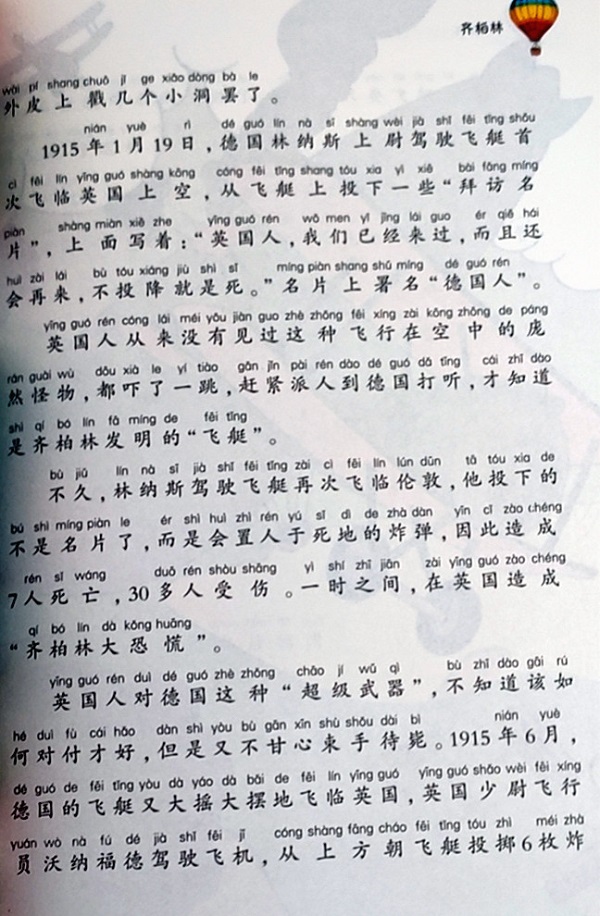 齐柏林
wài pí shang chuō jǐ ge xiǎo dòng bà le
外皮上戳几个小洞罢了。
nián yuè rì dé guó lín nà sī shàng wèi jià shǐ fēi tǐng shǒu
1915年1月19日，德国林纳斯上尉驾驶飞艇首
cì fēi lín yīng guó shàng kōng cóng fēi tǐng shang tóu xia yì xiē bài fǎng míng
次飞临英国上空，从飞艇上投下一些“拜访名
piàn shàng miàn xiě zhe yīng guó rén wǒ men yǐ jīng lái guo ér qiě hái
片”，上面写着：“英国人，我们已经来过，而且还
huì zài lái bù tóu xiáng jiù shì sǐ míng piàn shang shǔ míng dé guó rén
会再来，不投降就是死。”名片上署名“德国人”。
yīng guó rén cóng lái méi yǒu jiàn guo zhè zhǒng fēi xíng zài kōng zhōng de páng
英国人从来没有见过这种飞行在空中的庞
rán guài wù dōu xià le yí tiào gǎn jǐn pài rén dào dé guó dǎ tīng cái zhī dào
然怪物，都吓了一跳，赶紧派人到德国打听，才知道
shì qí bó lín fā míng de fēi tǐng
是齐柏林发明的“飞艇”。
bù jiǔ lín nà sī jià shǐ fēi tǐng zài cì fēi lín lún dūn tā tóu xia de
不久，林纳斯驾驶飞艇再次飞临伦敦，他投下的
bú shì míng piàn le ér shì huì zhì rén yú sǐ dì de zhà dàn yīn cǐ zào chéng
不是名片了，而是会置人于死地的炸弹，因此造成
rén sǐ wáng duō rén shòu shāng yì shí zhī jiān zài yīng guó zào chéng
7人死亡，30多人受伤。一时之间，在英国造成
qí bó lín dà kǒng huāng
“齐柏林大恐慌”。
yīng guó rén duì dé guó zhè zhǒng chāo jí wǔ qì bù zhī dào gāi rú
英国人对德国这种“超级武器”，不知道该如
hé duì fù cái hǎo dàn shì yòu bù gān xīn shù shǒu dài bì nián yuè
何对付才好，但是又不甘心束手待毙。1915年6月，
dé guó de fēi tǐng yòu dà yáo dà bǎi de fēi lín yīng guó yīng guó shào wèi fēi xíng
德国的飞艇又大摇大摆地飞临英国，英国少尉飞行
yuán wò nà fú dé jià shǐ fēi jī cóng shàng fāng cháo fēi tǐng tóu zhì méi zhà
员沃纳福德驾驶飞机，从上方朝飞艇投掷6枚炸